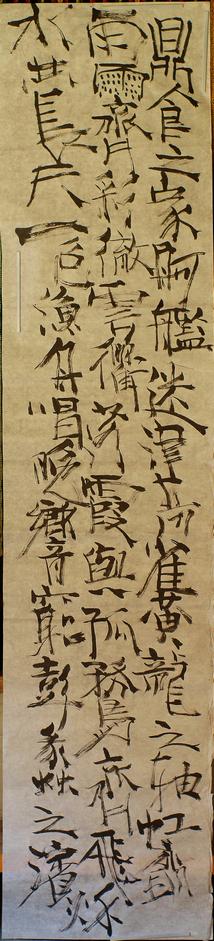 鼎食之家舸艦迷津青雀黃龍之軸虹銷
雨霽彩徹雲衢落霞與孤鶩齊飛秋
水共長天一色漁舟唱晚響窮彭蠡之濱